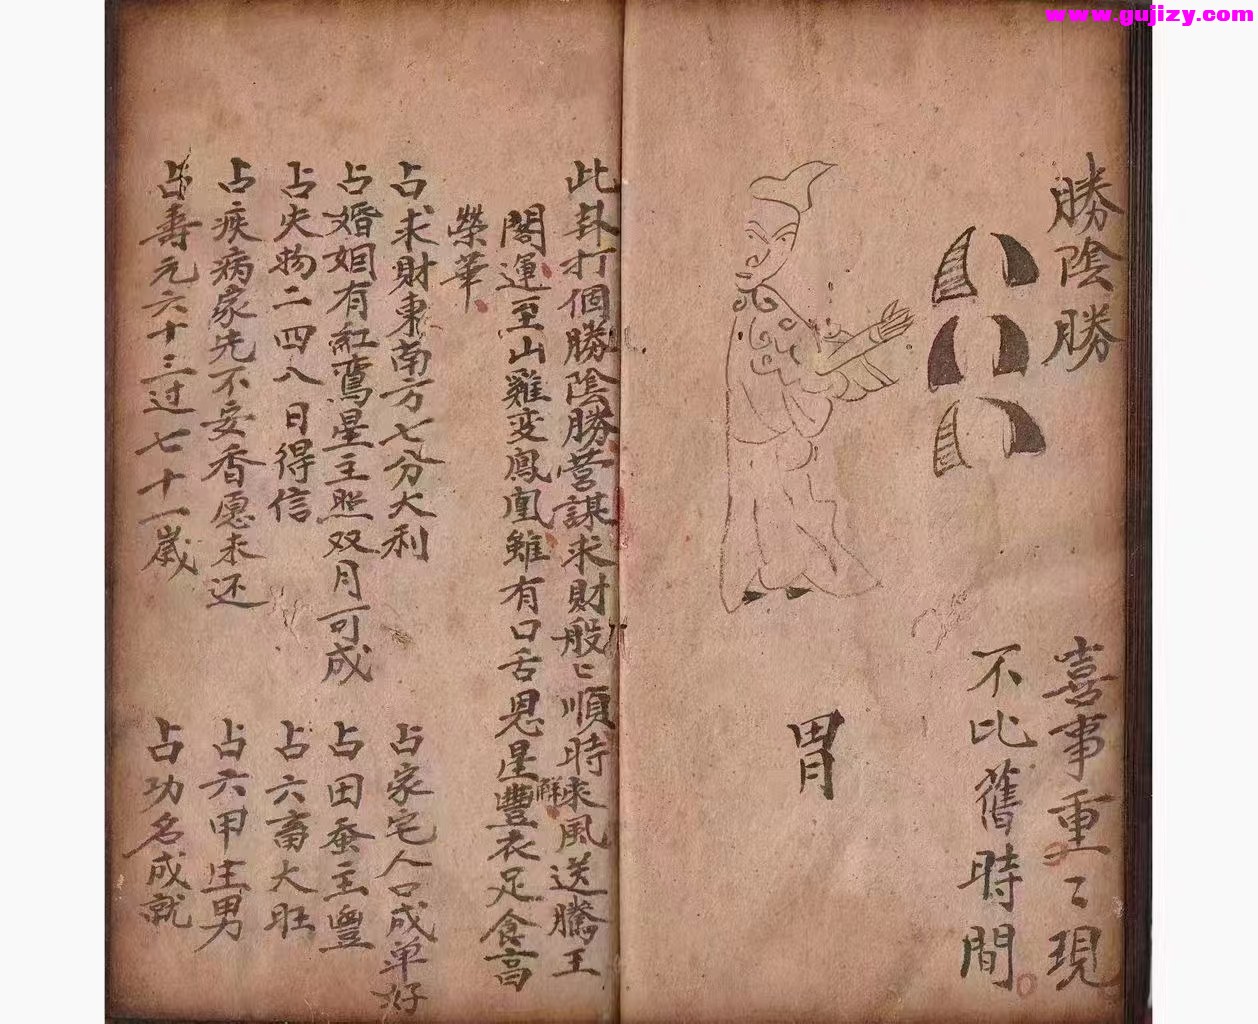 www.gujizy.com
勝陰勝
喜事重〻現
不比舊時間
胃
此卦打個勝陰勝營謀求財般〻順時來風送騰王
閣運至山雞变鳳凰雖有口舌恩星解豐衣足食高
榮華
占求財東南方七分大利
占家宅人口成单好
占婚姻有紅鸞星主照双月可成
占田蚕主豐
占失物二四八日得信
占六畜大旺
占疾病家先不安香愿未还
占六甲生男
占壽元六十三过七十一歲
占功名成就